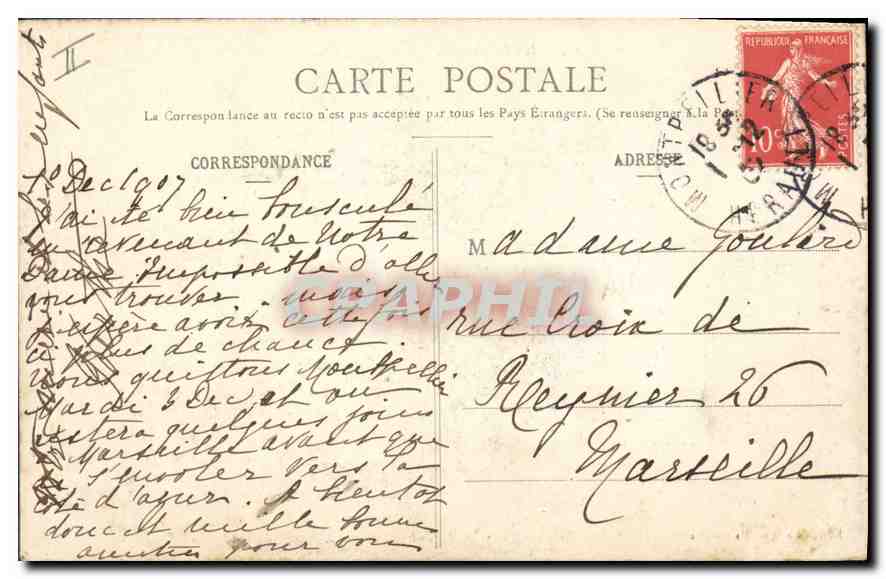 II
CARTE POSTALE
La Correspondance au recto n'est pas acceptée par tous les Pays Étrangers. (Se renseigner à la Po
CORRESPONDANCE
ADRESSE
REPUBLIQUE FRANÇAISE
10 c
POSTES
MONTPELLIER
18
HERAULT
1° Dec 1907
J'ai été bien bousculé
en revenant de Notre
Dame impossible d'aller
vous trouver. mais
j'espère avoir cette fois
ci plus de chance.
Nous quittons Montpellier
Mardi 3 Dec et on
restera quelques jours
à Marseille avant que
s'envoler vers la
côte d'azur. A bientot
donc et mille bonne
pour vous
Madame Goulard
rue Croix de
Reynier 26
Marseille
CPAPHIL